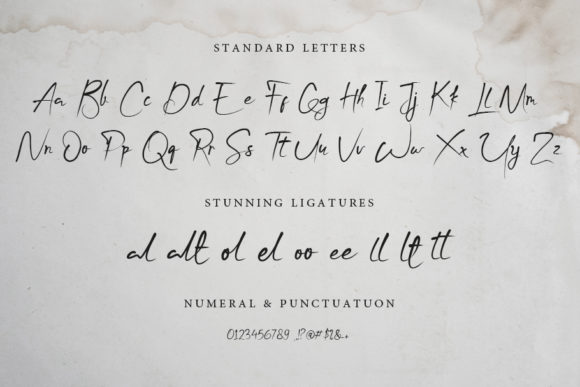 STANDARD LETTERS
Aa Bb Cc Dd Ee Ff Gg Hh Ii Jj Kk Ll Mm
Nn Oo Pp Qq Rr Ss Tt Uu Vv Ww Xx Yy Zz
STUNNING LIGATURES
al alt ol el oo ee ll lt tt
NUMERAL & PUNCTUATUON
0123456789 .!?@#$%&..